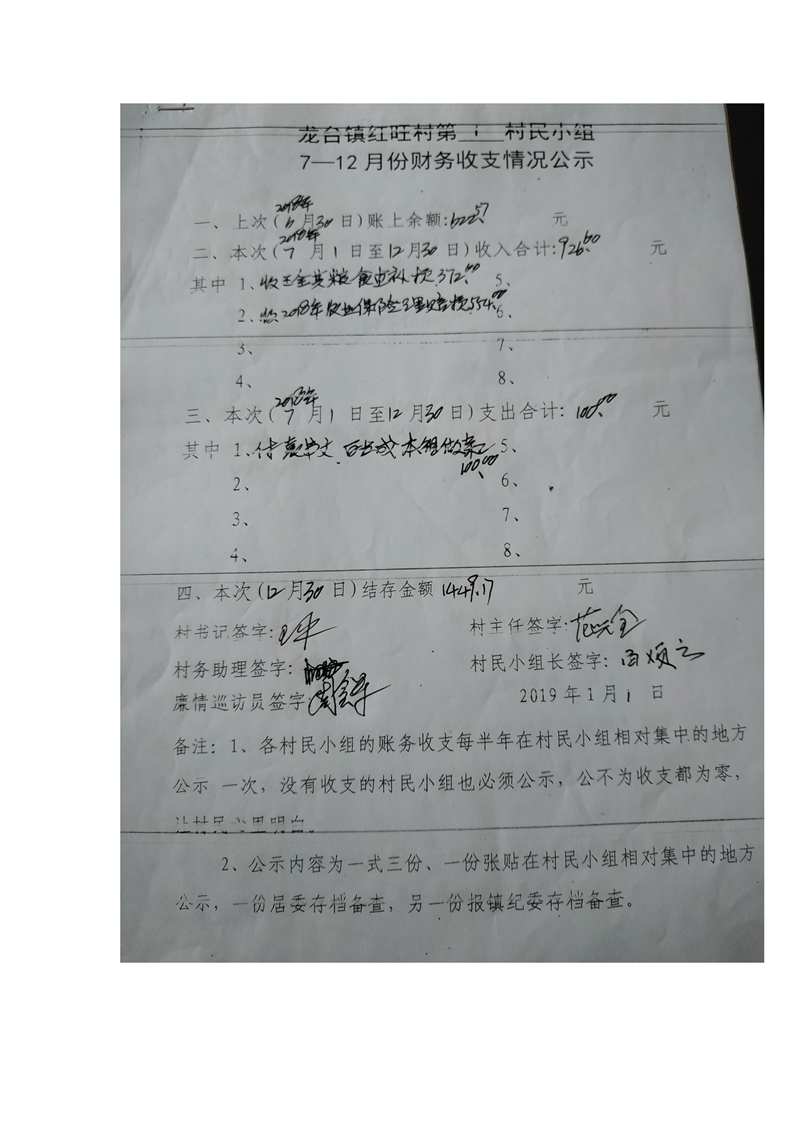 龙台镇红旺村第 1 村民小组
7—12月份财务收支情况公示
2018年
一、上次(6月30日)账上余额:622.57 元
2018年
二、本次(7月1日至12月30日)收入合计:926.60 元
其中 1、收 粮食直补款372.60 5、
2、收2018年农业保险 赔款554.00 6、
3、 7、
4、 8、
2018年
三、本次(7月1日至12月30日)支出合计:100.00 元
其中 1、付 本组做 5、
100.00
2、 6、
3、 7、
4、 8、
四、本次(12月30日)结存金额1449.17 元
村书记签字: 村主任签字:
村务助理签字: 村民小组长签字:
廉情巡访员签字: 2019年1月1日
备注:1、各村民小组的账务收支每半年在村民小组相对集中的地方
公示 一次,没有收支的村民小组也必须公示,公不为收支都为零,
让村民心里明白。
2、公示内容为一式三份、一份张贴在村民小组相对集中的地方
公示,一份居委存档备查,另一份报镇纪委存档备查。